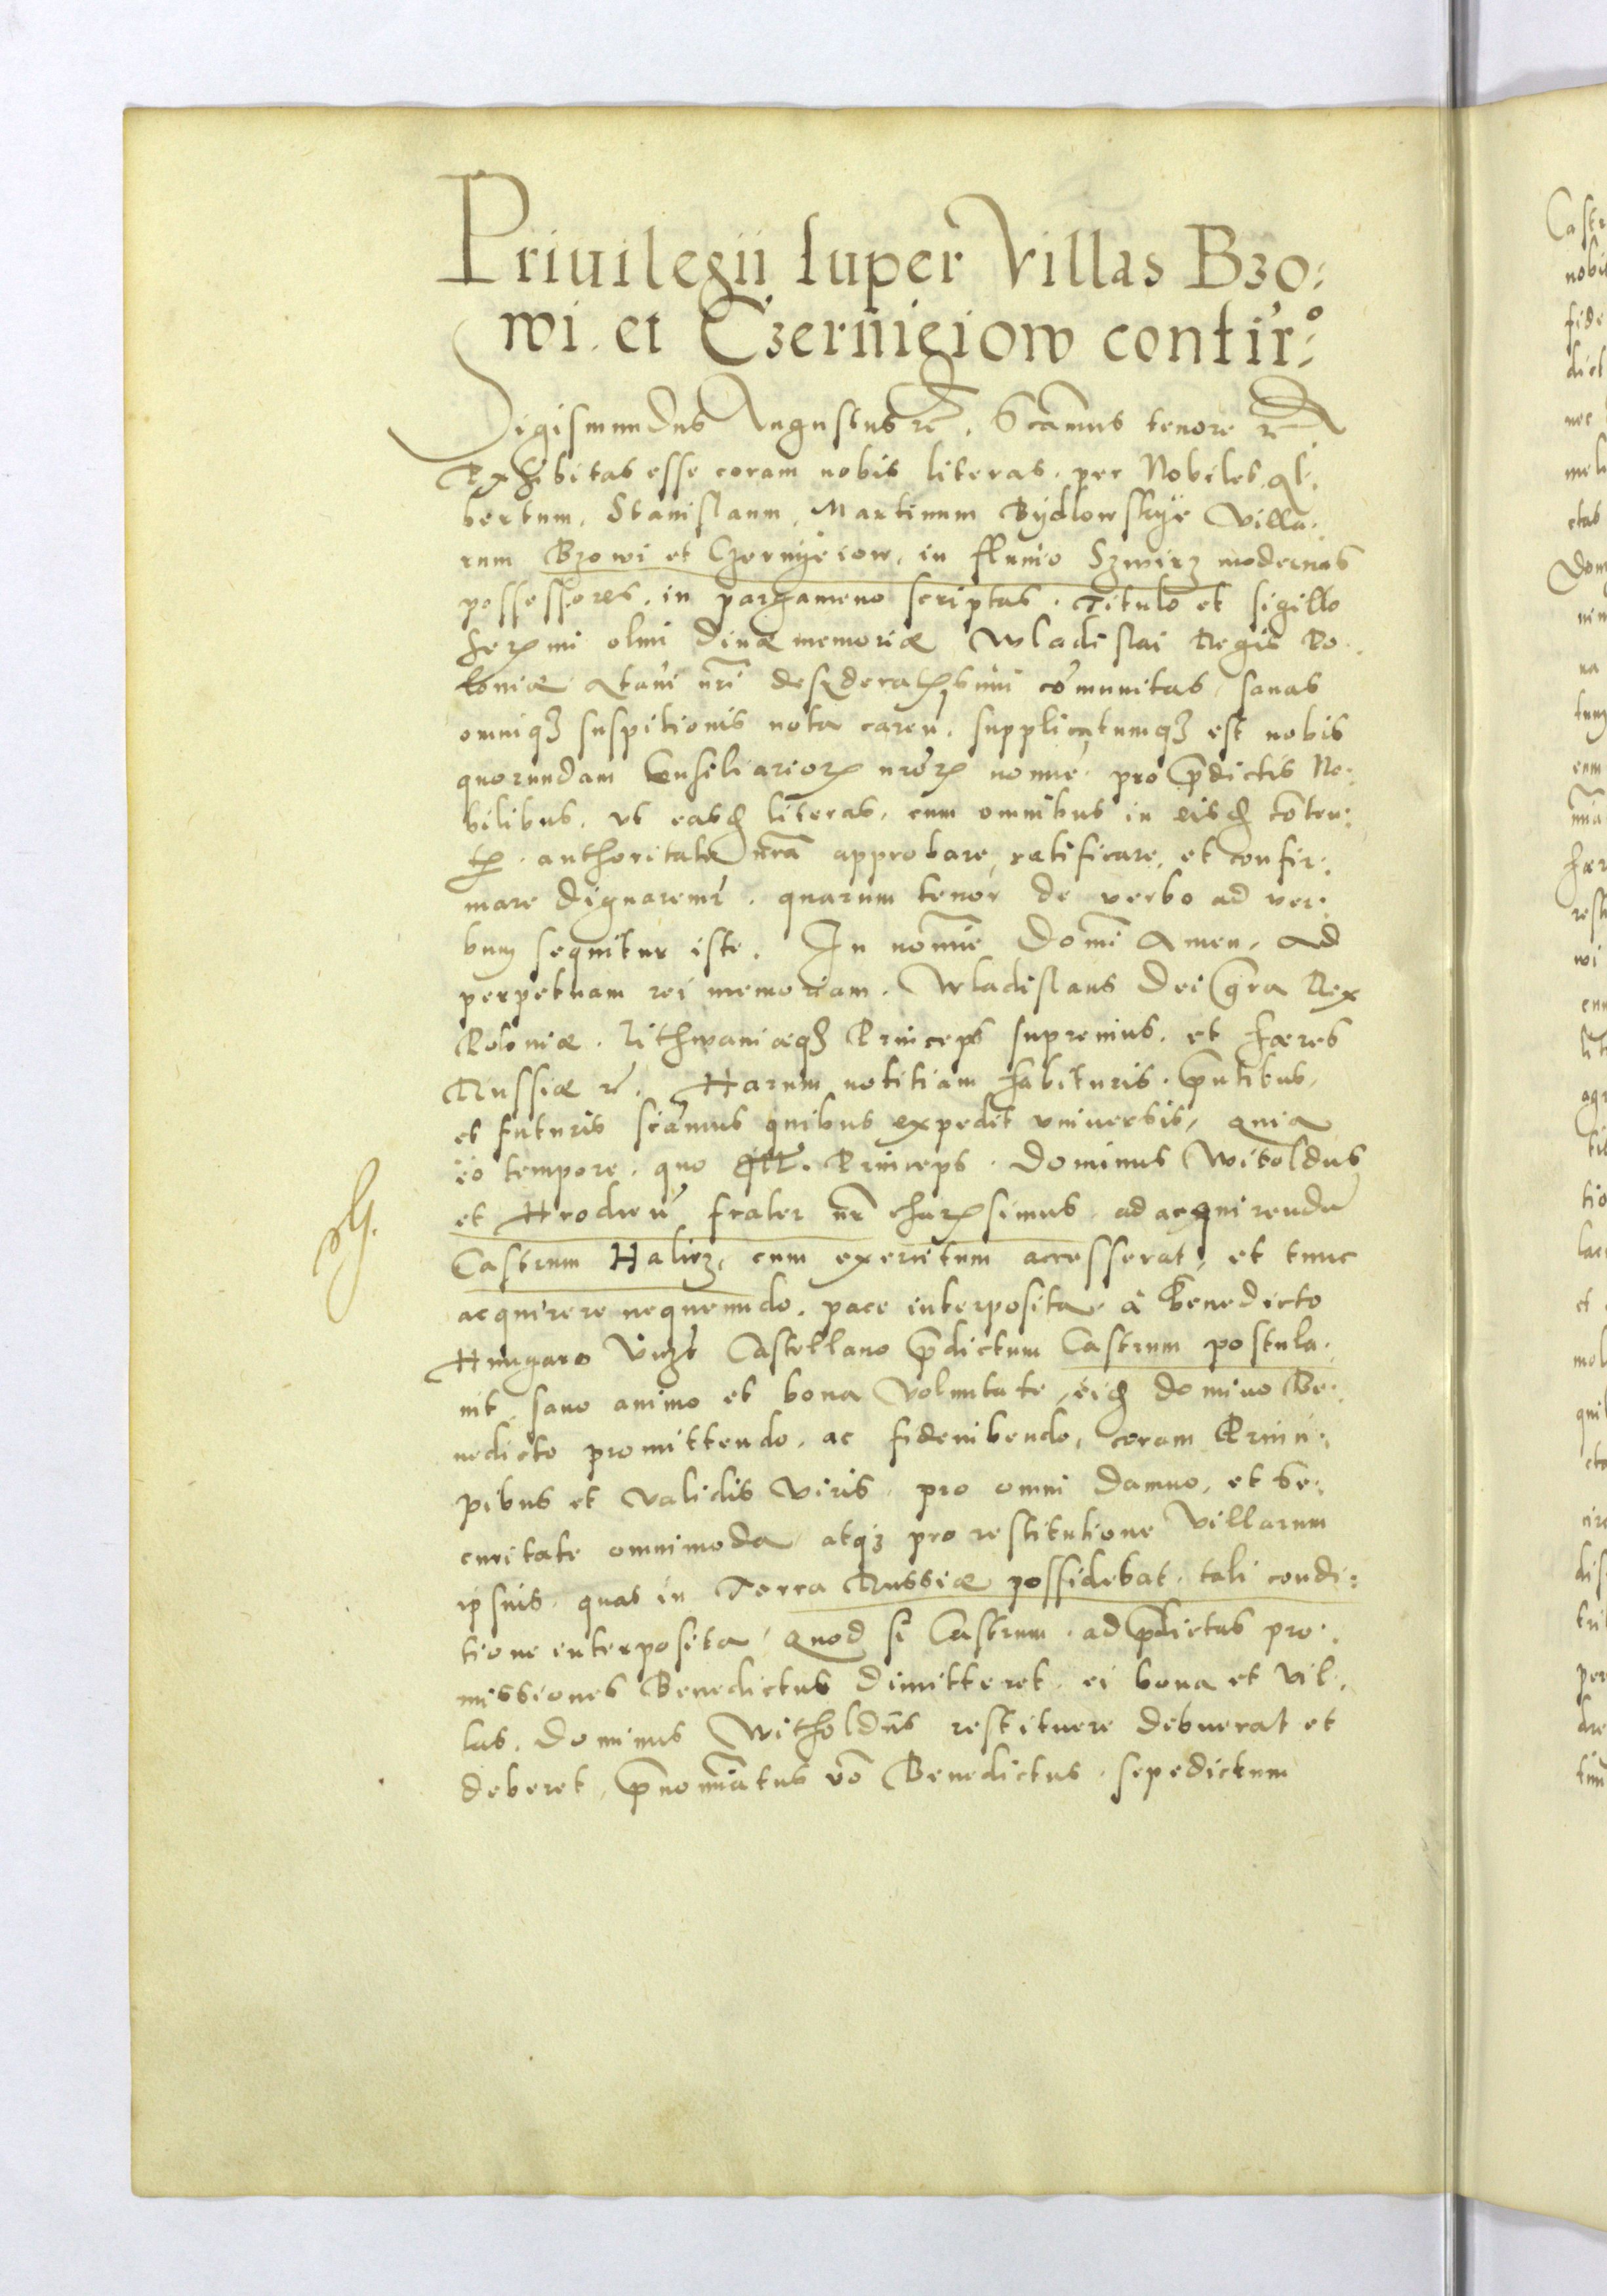 Priuilegii super Villas Bzo:
wi et Czernieiow confir:º
Sigismundus Augustus rc̃. Scamus tenore rc̃
Exhibitas esse coram nobis literas per Nobiles Al:
bertum, Stanislaum, Martinum Bydlowskye villa:
rum Bzowi et Czernyeiow, in fluuio Szwirz modernos
possessores, in pargameno scriptas. Titulo et sigillo
olim diuæ memoriæ Wladislai Regis Po:
loniæ Ataui nr̃i cõmunitas, sanas
omniq3 suspitionis nota caren. supplicatumq3 est nobis
quorundam Consiliarior̃ nrõr̃ noĩe pro p̃dictis No:
bilibus, vt easd̃ literas, cum omnibus in eisd̃ cõten:
t̃ authoritate nr̃a approbare, ratificare, et confir:
mare dignaremr̃. quarum tenor de verbo ad ver:
bum sequitur iste. In noĩe Domĩ Amen. Ad
perpetuam rei memoriam. Wladislaus Dei gr̃a Rex
Poloniæ. Lithwaniæq3 Princeps supremus. et hæres
Russiæ rc̃. Harum notitiam habituris. p̃ntibus,
et futuris scamus quibus expedit vniuersis, quia
eo tempore, quo Ill. Princeps. Dominus Witoldus
et frater nr̃ charissimus. ad acquirendũ
Castrum Halicz, cum exercitum accesserat, et tunc
acquirere nequeundo, pace interposita à Benedicto
Hungaro Castellano p̃dictum Castrum postula:
uit sano animo et bona voluntate, eid̃ domino Be:
nedicto promittendo, ac fideiubendo, coram Princi:
pibus et validis viris. pro omni damno, et se:
curitate omnimoda atq3 pro restitutione villarum
ipsius. quas in Terra Russiæ possidebat. tali condi:
tione interposita, quod si Castrum. ad p̃dictas pro:
missiones Benedictus dimitteret. ei bona et vil:
las. dominus Witholdus restituere debuerat et
deberet, p̃nomĩatus vo Benedictus. sepedictum